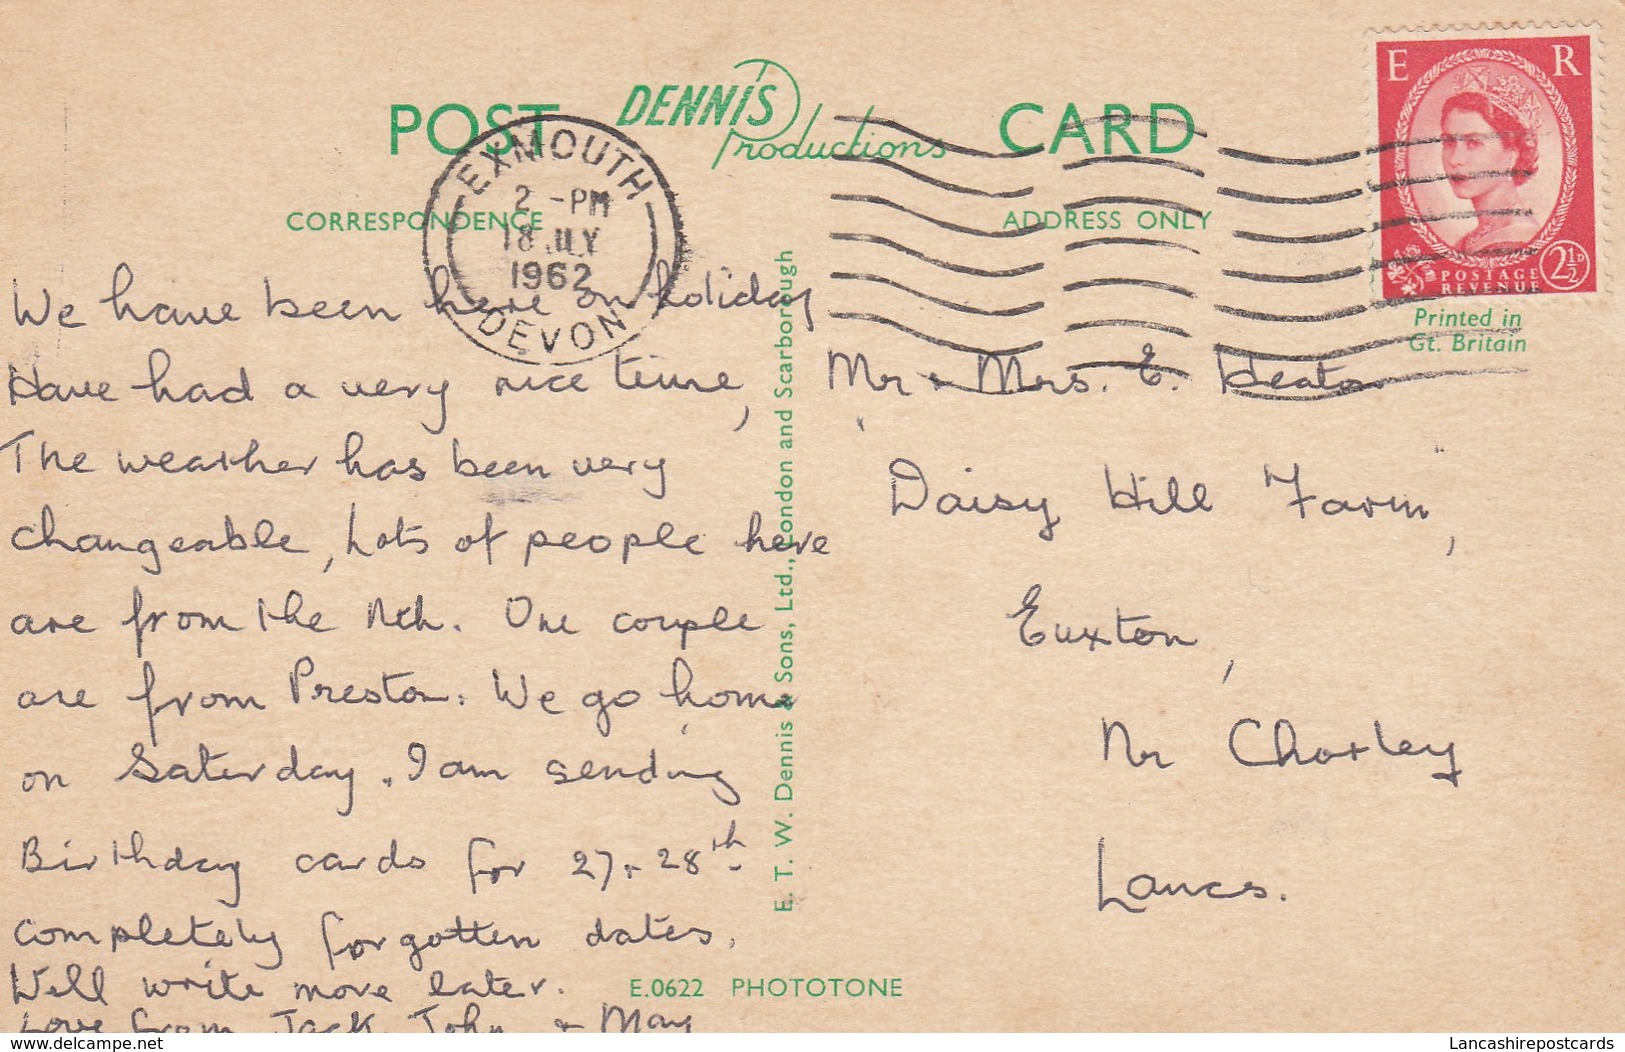 POST DENNIS Productions CARD
CORRESPONDENCE
ADDRESS ONLY
EXMOUTH
2 -PM
18 JLY
1962
DEVON
E R
POSTAGE
REVENUE
2½D
Printed in
Gt. Britain
We have been here on holiday
Have had a very nice time,
The weather has been very
changeable, Lots of people here
are from the Nth. One couple
are from Preston. We go home
on Saturday. I am sending
Birthday cards for 27 + 28th
completely forgotten dates.
Will write more later.
Love from Jack, John + May
E. T. W. Dennis & Sons, Ltd., London and Scarborough
Mr + Mrs. E. Heaton
"Daisy Hill Farm",
Euxton,
Nr Chorley
Lancs.
E.0622 PHOTOTONE
www.delcampe.net
Lancashirepostcards